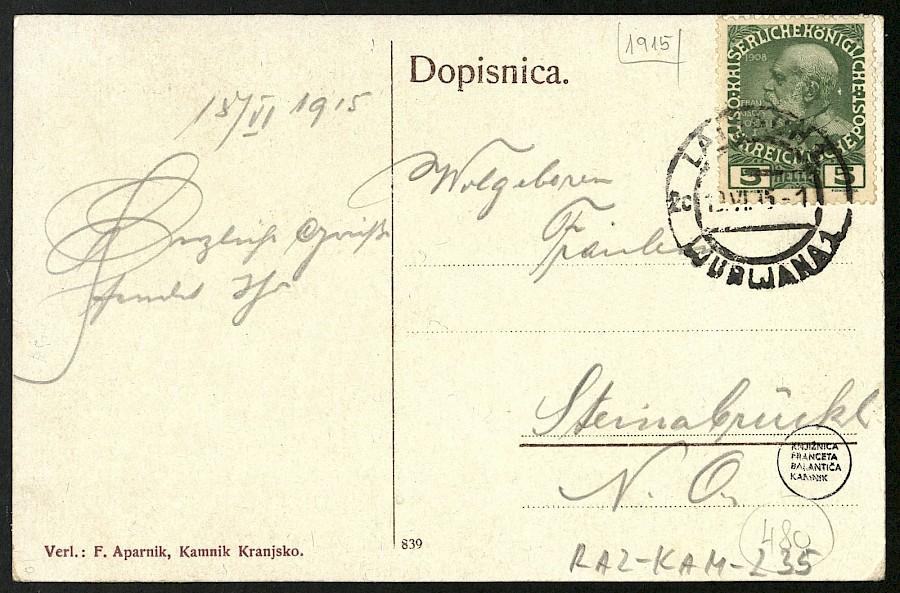 Dopisnica.
1915
18/VI 1915
Herzliche Grüße
sendet Ihr
Wolgeboren
Fräulein
Steinabrückl
N. Ö.
KAISERLICHE KÖNIGLICHE ÖSTERREICHISCHE POST
1908
5 HELLER 5
LJUBLJANA 1
KNJIŽNICA
FRANCETA
BALANTIČA
KAMNIK
480
RAZ-KAM-235
Verl.: F. Aparnik, Kamnik Kranjsko.
839